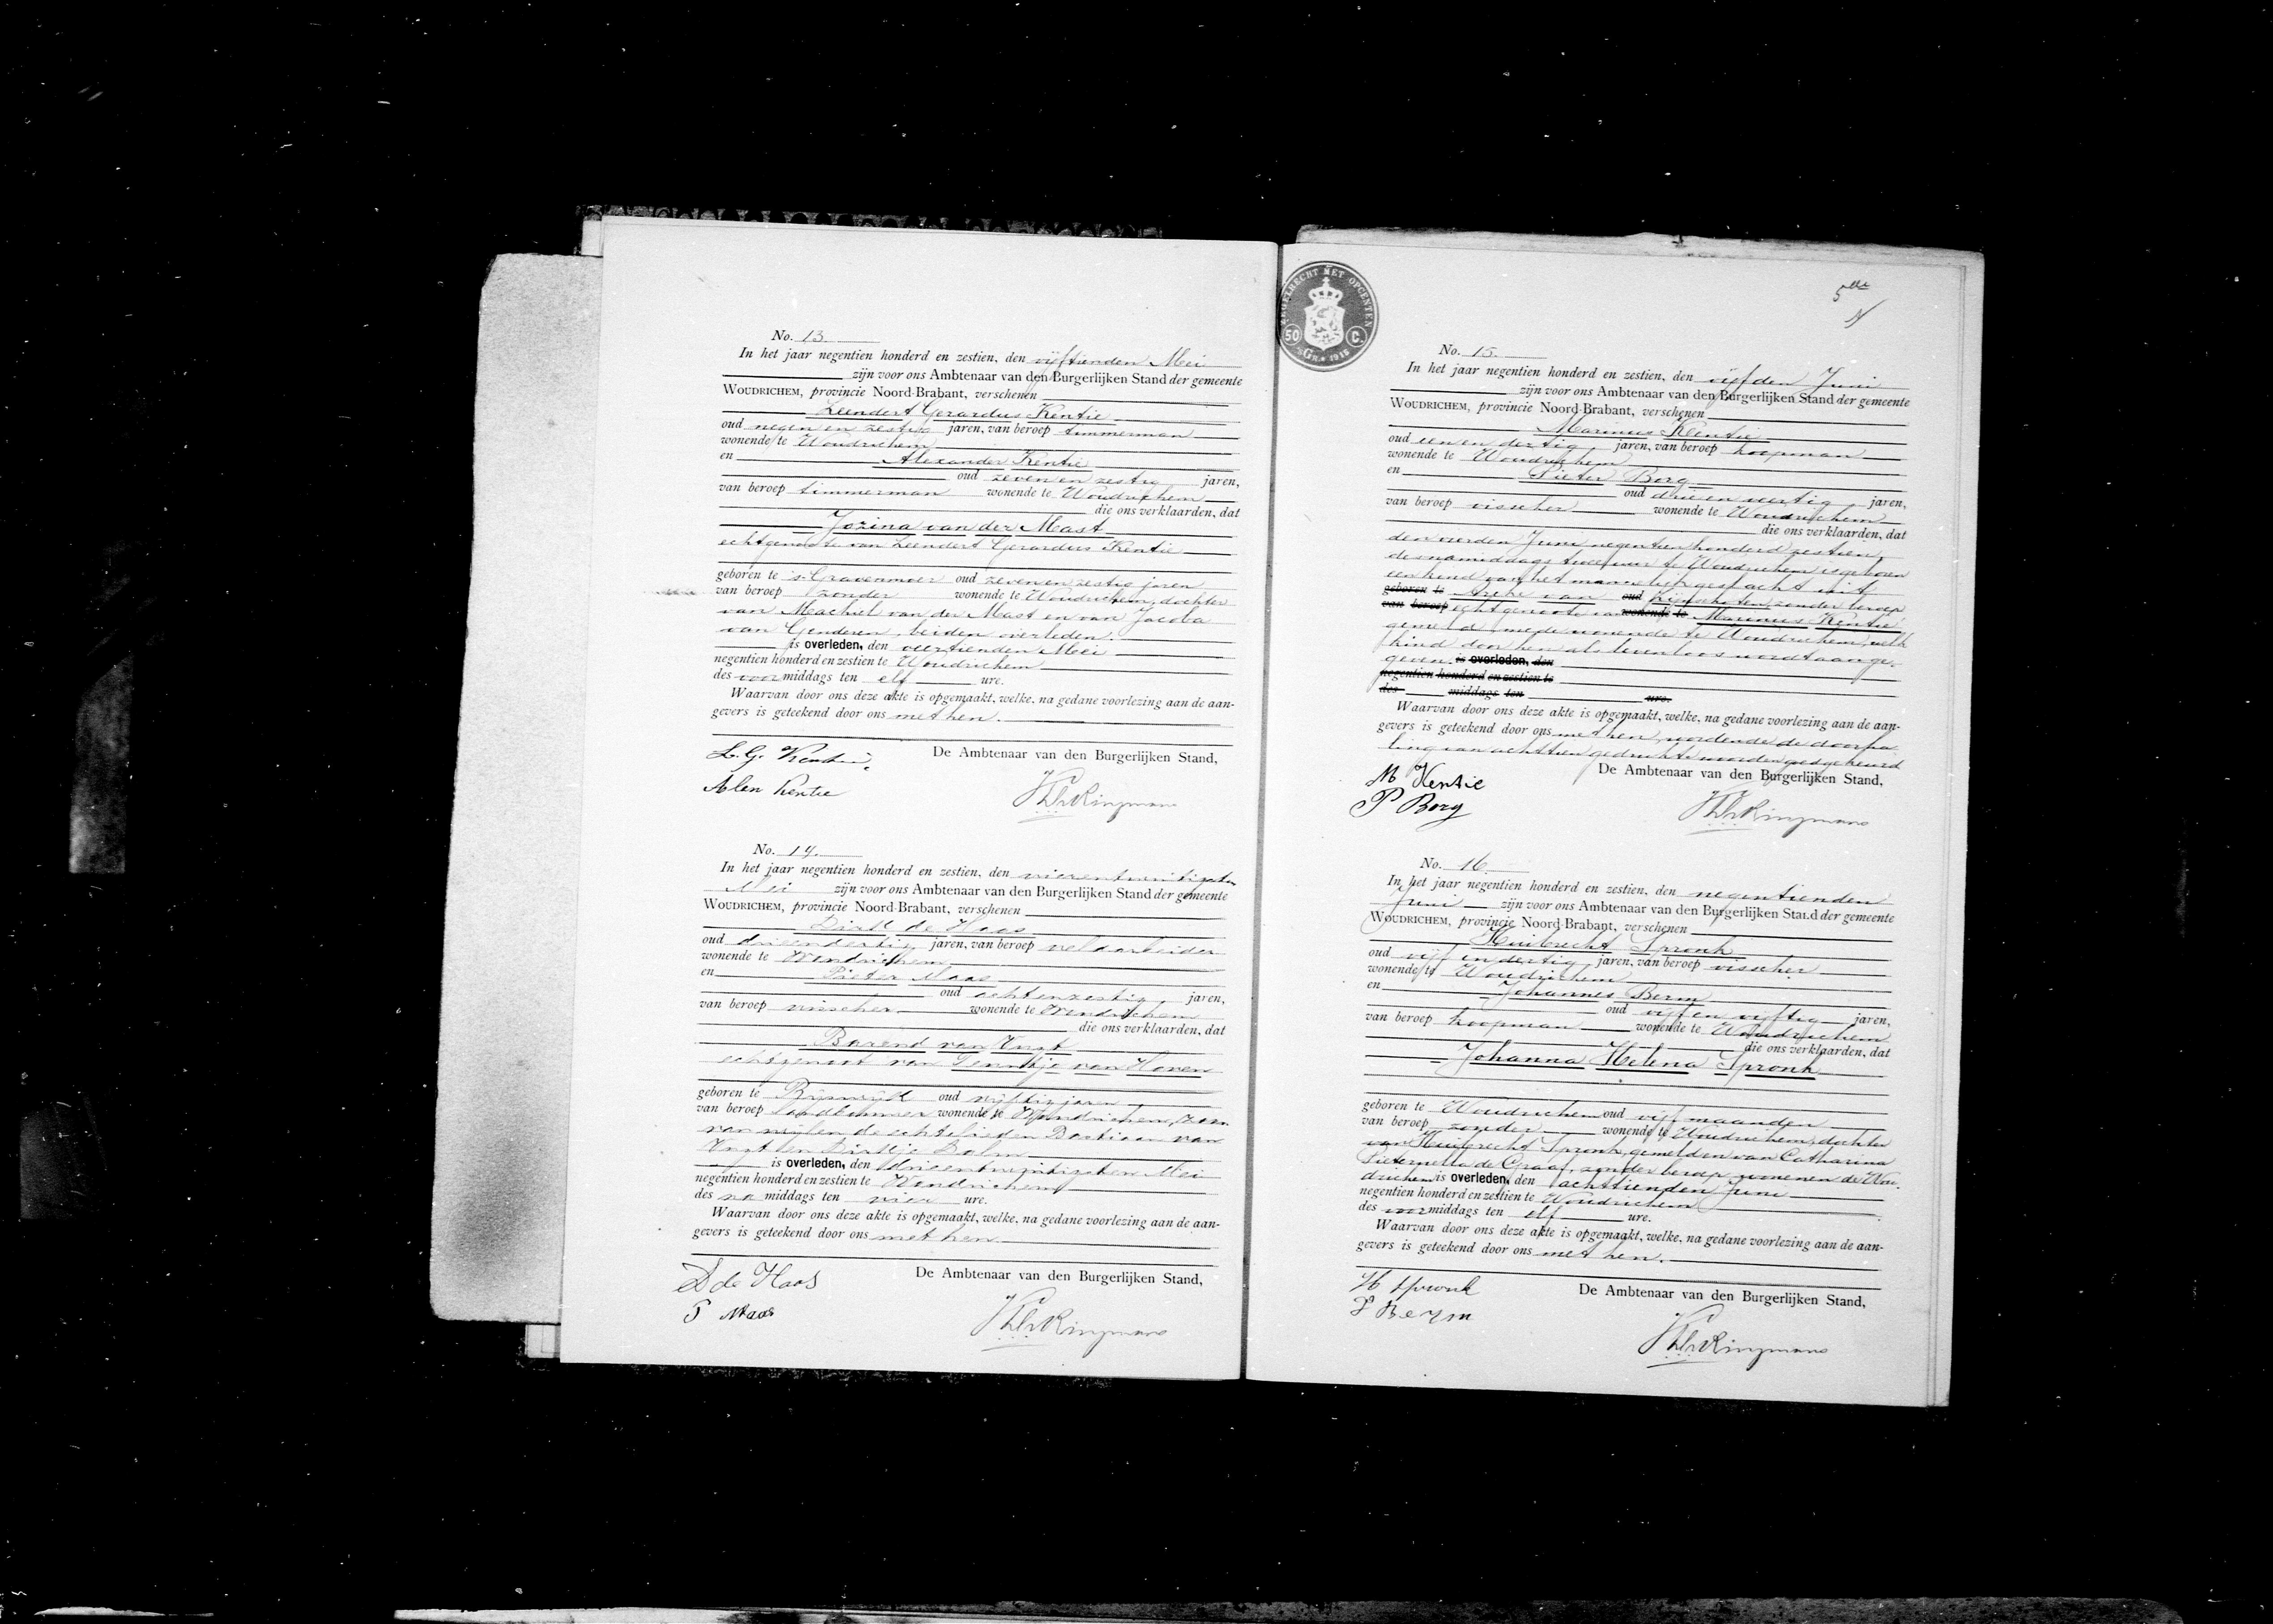 No. 13
In het jaar negentien honderd en zestien, den vijftienden Mei
zijn voor ons Ambtenaar van den Burgerlijken Stand der gemeente
WOUDRICHEM, provincie Noord-Brabant, verschenen
Leendert Gerardus Kentie
oud negen en zestig jaren, van beroep timmerman
wonende te Woudrichem
en Alexander Kentie
oud zeven en zestig jaren,
van beroep timmerman wonende te Woudrichem
die ons verklaarden, dat
Jozina van der Mast
echtgenoote van Leendert Gerardus Kentie
geboren te 's-Gravenmoer oud zeven en zestig jaren
van beroep zonder wonende te Woudrichem, dochter
van Machiel van der Mast en van Jacoba
van Genderen, beiden overleden.
is overleden, den veertienden Mei
negentien honderd en zestien te Woudrichem
des voormiddags ten elf ure.
Waarvan door ons deze akte is opgemaakt, welke, na gedane voorlezing aan de aan-
gevers is geteekend door ons met hen.
De Ambtenaar van den Burgerlijken Stand,
L. G. Kentie.
Alex Kentie
No. 14.
In het jaar negentien honderd en zestien, den vierentwintigsten
Mei zijn voor ons Ambtenaar van den Burgerlijken Stand der gemeente
WOUDRICHEM, provincie Noord-Brabant, verschenen
Dirk de Haas
oud drieendertig jaren, van beroep veldarbeider
wonende te Woudrichem
en Pieter Maas
oud achtenzestig jaren,
van beroep visscher wonende te Woudrichem
die ons verklaarden, dat
Barend van Vugt
echtgenoot van Teuntje van Hoven
geboren te oud vijftig jaren
van beroep landbouwer wonende te Woudrichem, zoon
van wijlen de echtelieden Bastiaan van
Vugt en Dirkje
is overleden, den drieentwintigsten Mei
negentien honderd en zestien te Woudrichem
des na middags ten vier ure.
Waarvan door ons deze akte is opgemaakt, welke, na gedane voorlezing aan de aan-
gevers is geteekend door ons met hen.
De Ambtenaar van den Burgerlijken Stand,
D de Haas
P Maas
5de
ZEGELRECHT MET OPCENTEN
50 C.
'S GRA 1915
No. 15.
In het jaar negentien honderd en zestien, den vijfden Juni
zijn voor ons Ambtenaar van den Burgerlijken Stand der gemeente
WOUDRICHEM, provincie Noord-Brabant, verschenen
Marinus Kentie
oud een en dertig jaren, van beroep koopman
wonende te Woudrichem
en Pieter Borg
oud drie en veertig jaren,
van beroep visscher wonende te Woudrichem
die ons verklaarden, dat
den vierden Juni negentien honderd zestien,
des namiddags twee uur te Woudrichem is geboren
een kind van het mannelijk geslacht uit
geboren te van oud zonder beroep
van beroep echtgenoote van wonende te Marinus Kentie
gemeld, mede wonende te Woudrichem, welk
kind door hen als levenloos wordt aange-
geven. is overleden, den
negentien honderd en zestien te
des middags ten ure.
Waarvan door ons deze akte is opgemaakt, welke, na gedane voorlezing aan de aan-
gevers is geteekend door ons met hen, wordende de doorha
ling van achttien gedrukte woorden goedgekeurd
De Ambtenaar van den Burgerlijken Stand,
M Kentie
P Borg
No. 16.
In het jaar negentien honderd en zestien, den negentienden
Juni zijn voor ons Ambtenaar van den Burgerlijken Stand der gemeente
WOUDRICHEM, provincie Noord-Brabant, verschenen
Huibrecht Spronk
oud vijf en dertig jaren, van beroep visscher
wonende te Woudrichem
en Johannes Berm
oud vijf en vijftig jaren,
van beroep koopman wonende te Woudrichem
die ons verklaarden, dat
Johanna Helena Spronk
geboren te Woudrichem oud vijf maanden
van beroep zonder wonende te Woudrichem, dochter
van Huibrecht Spronk, gemeld en van Catharina
Pieternella de Graaf, zonder beroep wonende te Wou-
drichem is overleden, den achttienden Juni
negentien honderd en zestien te Woudrichem
des voormiddags ten elf ure.
Waarvan door ons deze akte is opgemaakt, welke, na gedane voorlezing aan de aan-
gevers is geteekend door ons met hen.
De Ambtenaar van den Burgerlijken Stand,
H Spronk
Berm